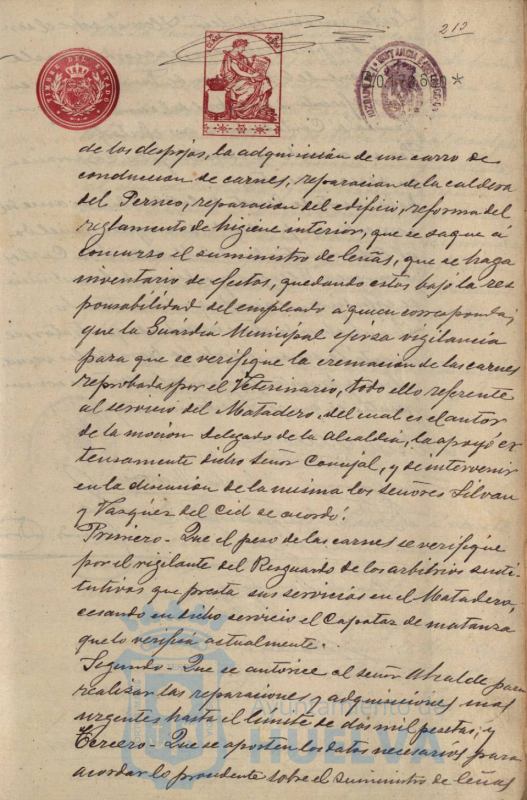 212
TIMBRE DEL ESTADO
0.178.680 *
de los despojos, la adquisición de un carro de
conducción de carnes, reparacion de la caldera
del Perneo, reparacion del edificio, reforma del
reglamento de higiene interior, que se saque á
concurso el suministro de leñas, que se haga
inventario de efectos, quedando estos bajo la res
ponsabilidad del empleado a quien corresponda;
que la Guardia Municipal ejerza vigilancia
para que se verifique la cremacion de las carnes
reprobadas por el Veterinario, todo ello referente
al servicio del Matadero, del cual es el autor
de la mocion Delegado de la Alcaldia, la apoyó ex
tensamente dicho Señor Concejal, y de intervenir
en la discusion de la misma los señores Silvan
y Vazquez del Cid se acordó:
Primero - Que el peso de las carnes se verifique
por el vigilante del Resguardo de los arbitrios susti
tutivos que presta sus servicios en el Matadero,
cesando en dicho servicio el Capataz de matanza
que lo verifica actualmente.
Segundo - Que se autorice al señor Alcalde para
realizar las reparaciones y adquisiciones mas
urgentes hasta el limite de dos mil pesetas; y
Tercero - Que se aporten los datos necesarios para
acordar lo procedente sobre el suministro de leñas
Ayuntamiento de
HUELVA